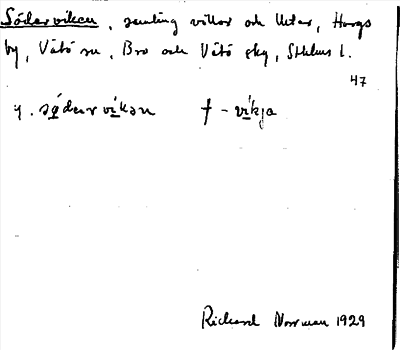 Söderviken, samling villor och hitar, Hargs
by, Vätö sn, Bro och Vätö skg, Sthlms l.
47
y. södərvikən f -vikja
Rickard Norrman 1929